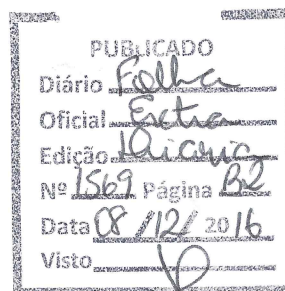 PUBLICADO
Diário Folha
Oficial Extra
Edição Diária
Nº 1569 Página B2
Data 08 /12/ 2016
Visto